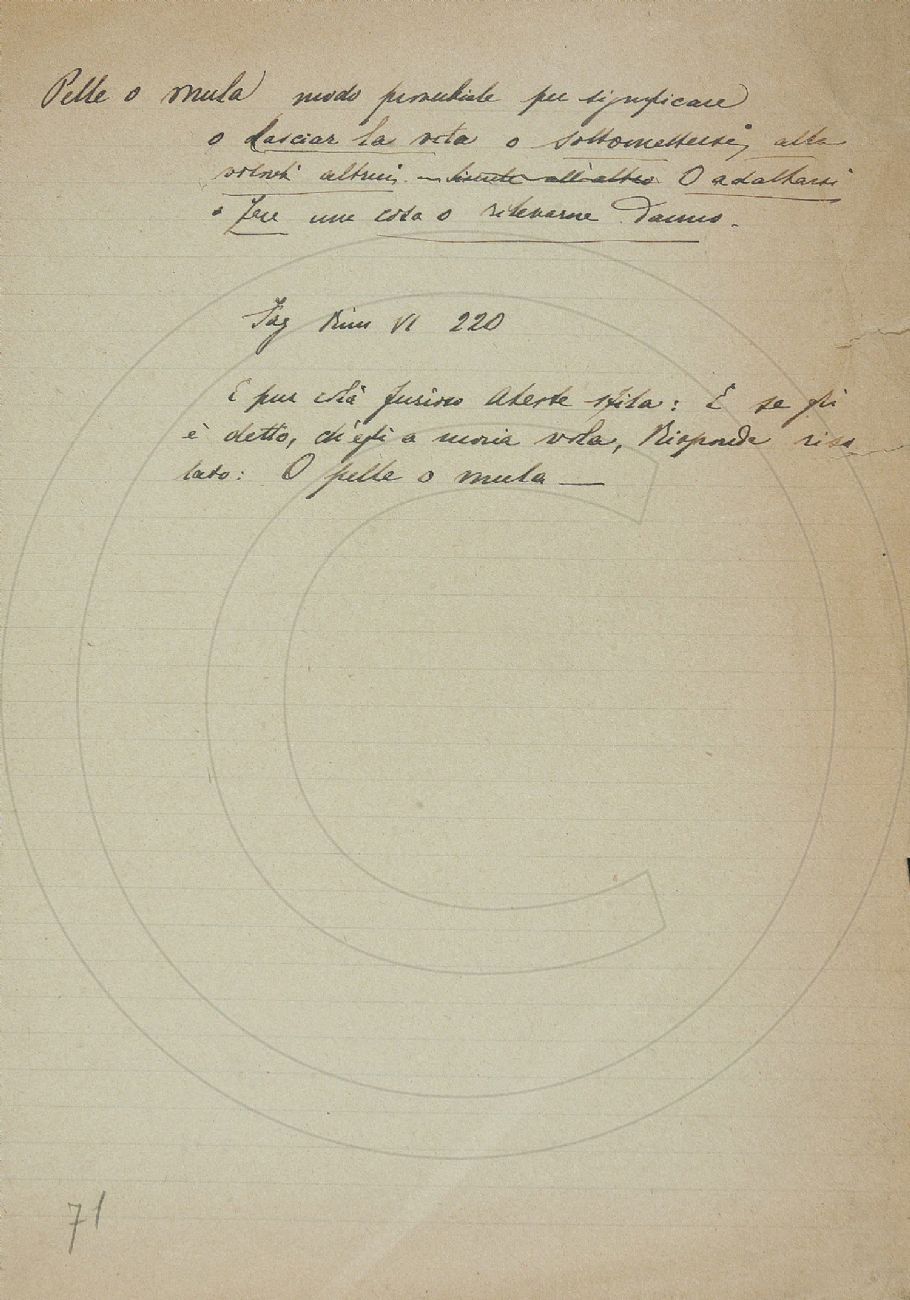 Pelle o mula modo proverbiale per significare
o lasciar la vita o sottomettersi, alla
volontà altrui, o adattarsi
a fare una cosa o rilevarne Danno.
Fag Rim VI 220
E pur colà furioso Alceste sfila: E se gli
è detto, ch'egli a morir vola, Risponde riso
luto: O pelle o mula —
71